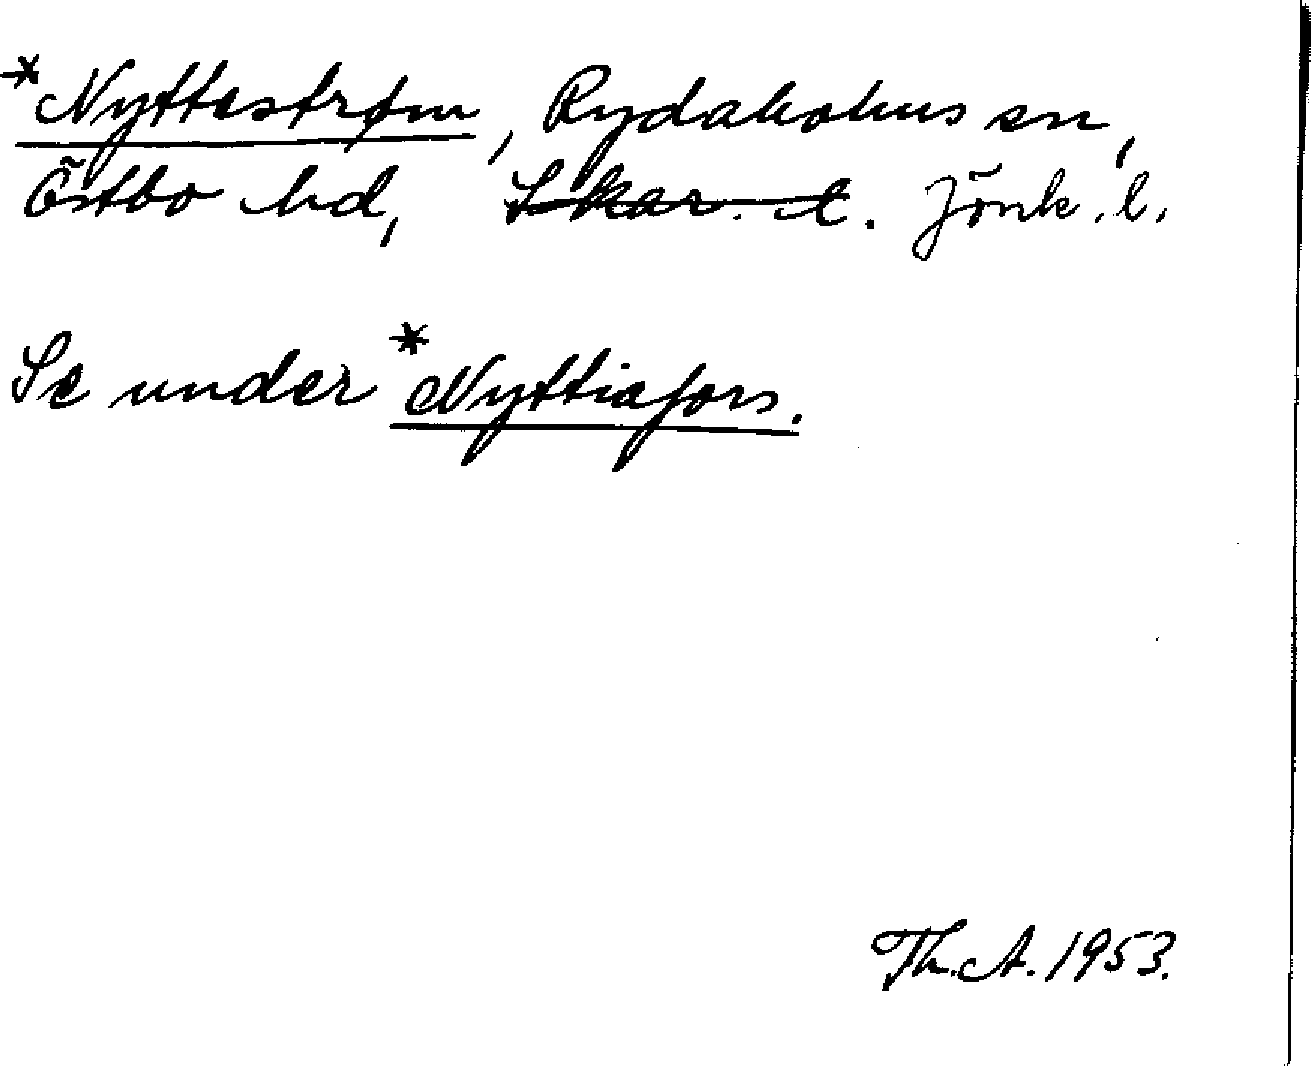 *Nyttestrøm, Rydaholms sn,
Östbo hd, Skar. l. Jönk. l.
Se under *Nyttiafors.
Th. A. 1953.